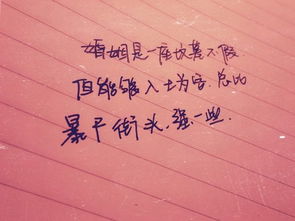 婚姻是一座坟墓不假
但能够入土为安.总比
暴尸街头.强一些.